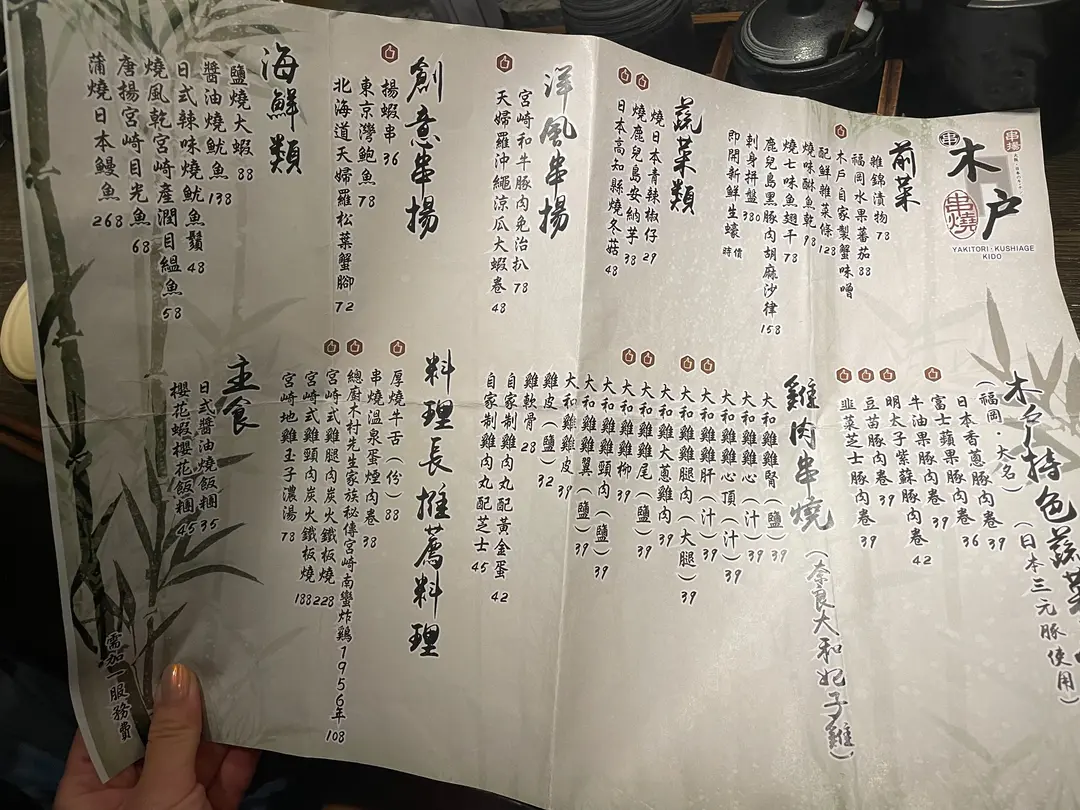 串揚
串
木戶
串燒
YAKITORI · KUSHIAGE
KIDO
前菜
雜錦漬物 78
福岡水果蕃茄 88
木戶自家製蟹味噌
配鮮雜菜條 128
燒味醂魚乾 98
燒七味魚翅干 78
鹿兒島黑豚肉胡麻沙律 158
刺身拼盤 380
即開新鮮生蠔 時價
蔬菜類
燒日本青辣椒仔 29
燒鹿兒島安納芋 38
日本高知縣燒冬菇 48
洋風串揚
宮崎和牛豚肉免治扒 78
天婦羅沖繩涼瓜大蝦卷 48
創意串揚
揚蝦串 36
東京灣鮑魚 78
北海道天婦羅松葉蟹腳 72
海鮮類
鹽燒大蝦 88
醬油燒魷魚 138
日式辣味燒魷魚鬚 48
燒風乾宮崎產潤目鰮魚 58
唐揚宮崎目光魚 68
蒲燒日本鰻魚 268
木戶特色蔬菜
(日本三元豚使用)
(福岡·大名)
日本香蔥豚肉卷 39
富士蘋果豚肉卷 36
牛油果豚肉卷 39
明太子紫蘇豚肉卷 42
豆苗豚肉卷 39
韮菜芝士豚肉卷 39
雞肉串燒 (奈良大和妃子雞)
大和雞雞腎 (鹽) 39
大和雞雞心 (汁) 39
大和雞雞心頂 (汁) 39
大和雞雞肝 (汁) 39
大和雞雞腿肉 (大腿) 39
大和雞大蔥雞肉 39
大和雞雞尾 (鹽) 39
大和雞雞柳 39
大和雞雞頸肉 (鹽) 39
大和雞雞翼 (鹽) 39
大和雞雞皮 39
雞皮 (鹽) 32
雞軟骨 28
自家制雞肉丸配黃金蛋 42
自家制雞肉丸配芝士 45
料理長推薦料理
厚燒牛舌 (份) 88
串燒溫泉蛋煙肉卷 38
總廚木村先生家族秘傳宮崎南蠻炸鷄1956年 108
宮崎式雞腿肉炭火鐵板燒 228
宮崎式雞頸肉炭火鐵板燒 188
宮崎地雞玉子濃湯 78
主食
日式醬油燒飯糰 35
櫻花蝦櫻花飯糰 45
需加一服務費